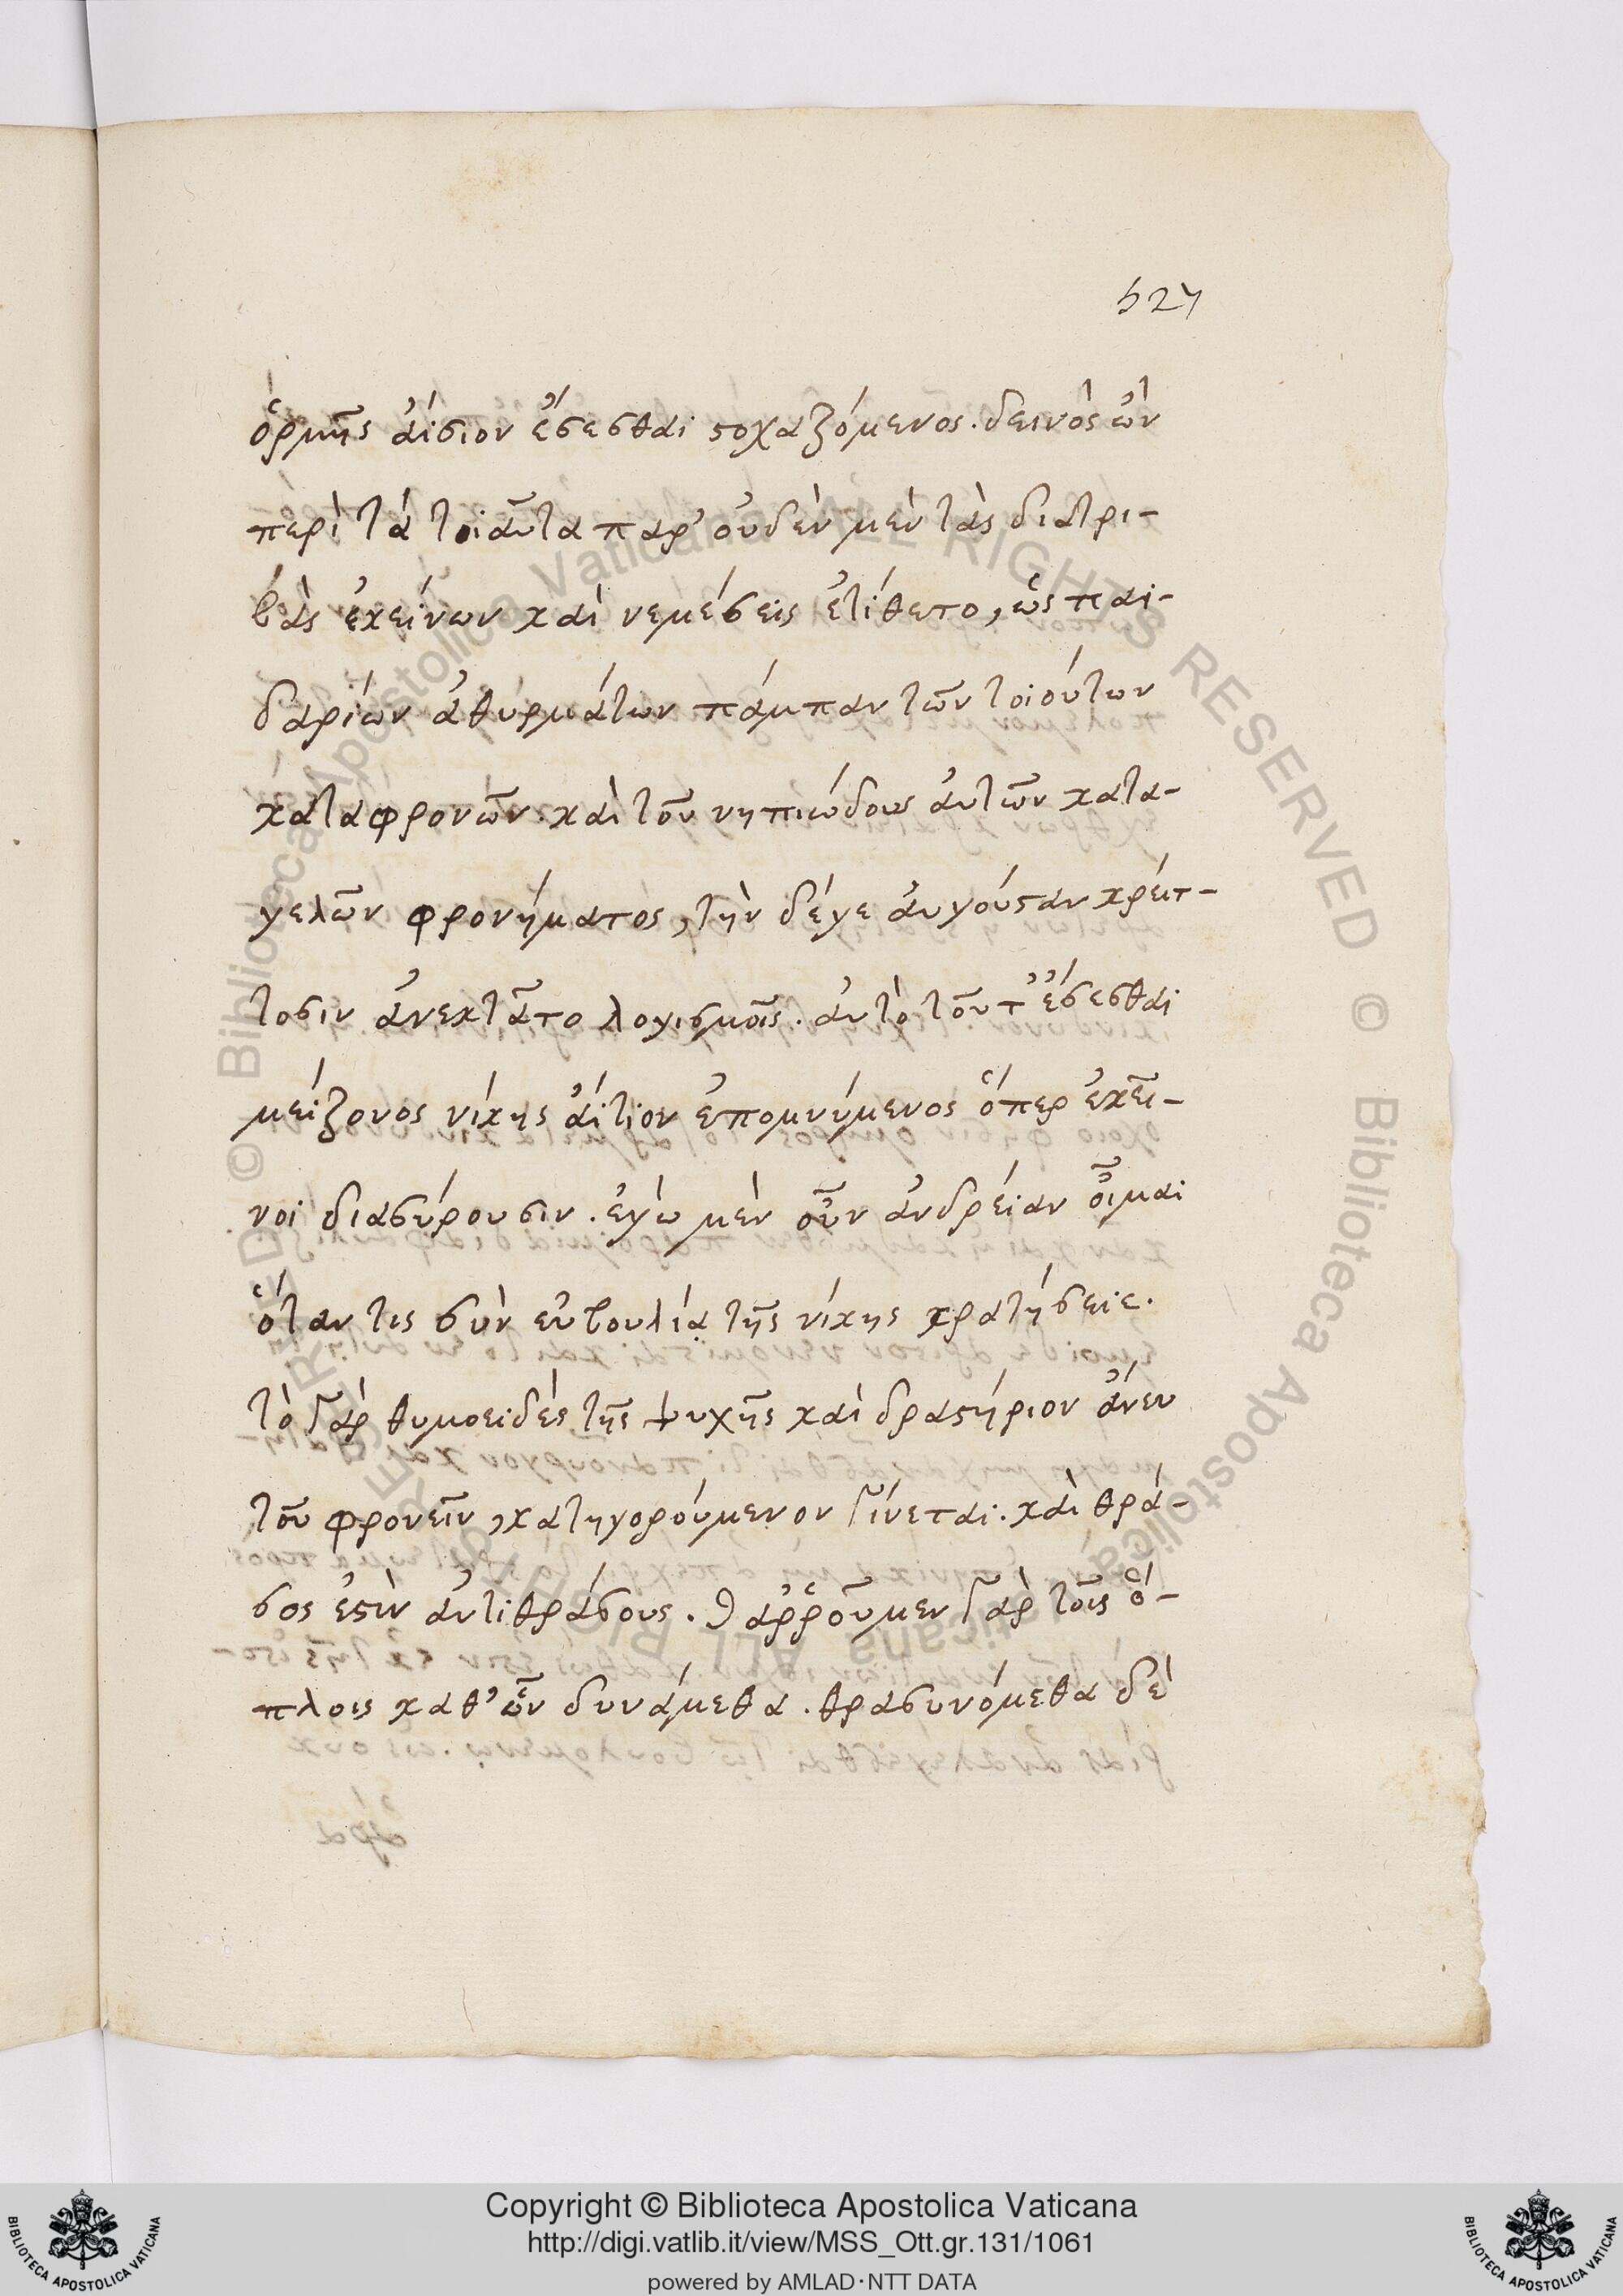 527
ὁρμῆς αἴσιον ἔσεσθαι στοχαζόμενος. δεινὸς ὢν
περὶ τὰ τοιαῦτα παρ' οὐδὲν μὲν τὰς διατρι-
βὰς ἐκείνων καὶ νεμέσεις ἐτίθετο, ὡς παι-
δαρίων ἀθυρμάτων πάμπαν τῶν τοιούτων
καταφρονῶν. καὶ τοῦ νηπιώδους αὐτῶν κατα-
γελῶν φρονήματος, τὴν δέγε αὐγούσταν κρείτ-
τοσιν ἀνεκτᾶτο λογισμοῖς. αὐτὸ τοῦτ' ἔσεσθαι
μείζονος νίκης αἴτιον ἐπομνύμενος ὅπερ ἐκεῖ-
νοι διασύρουσιν. ἐγὼ μὲν οὖν ἀνδρείαν οἶμαι
ὅταν τις σὺν εὐβουλία τῆς νίκης κρατήσειε.
τὸ γὰρ θυμοειδὲς τῆς ψυχῆς καὶ δραστήριον ἄνευ
τοῦ φρονεῖν, κατηγορούμενον γίνεται. καὶ θρά-
σος ἐστὶν ἀντιθράσους. θαῤῥοῦμεν γὰρ τοῖς ὅ-
πλοις καθ' ὧν δυνάμεθα. θρασυνόμεθα δὲ
Copyright © Biblioteca Apostolica Vaticana
http://digi.vatlib.it/view/MSS_Ott.gr.131/1061
powered by AMLAD·NTT DATA
BIBLIOTECA APOSTOLICA VATICANA
BIBLIOTECA APOSTOLICA VATICANA
© Biblioteca Apostolica Vaticana ALL RIGHTS RESERVED © Biblioteca Apostolica Vaticana ALL RIGHTS RESERVED